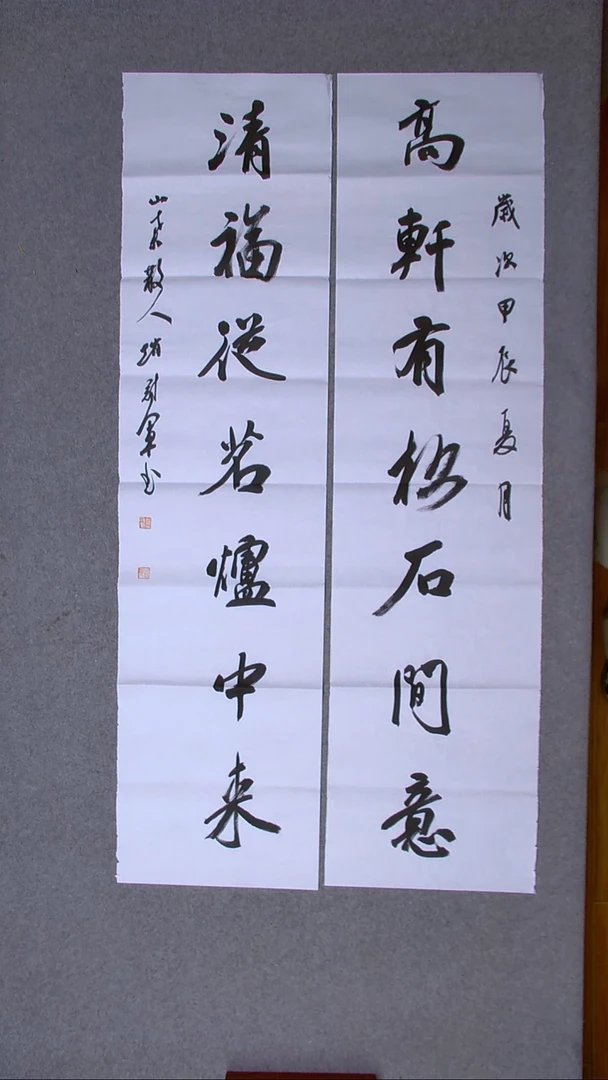 歲次甲辰夏月
高軒有松石間意
清福從茗爐中来
山東散人趙軍书